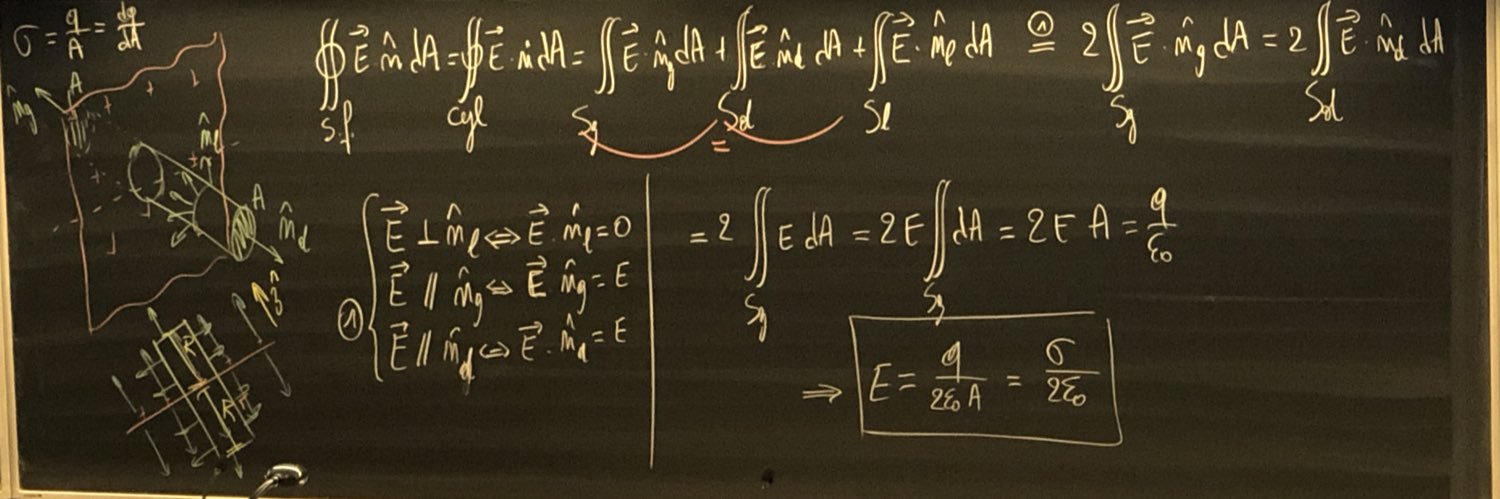 σ = q/A = dq/dA
∯_{S.f.} E⃗ n̂ dA = ∯_{cyl} E⃗ · n̂ dA = ∬_{Sg} E⃗ · n̂g dA + ∬_{Sd} E⃗ n̂d dA + ∬_{Sl} E⃗ · n̂l dA ①= 2∬_{Sg} E⃗ · n̂g dA = 2∬_{Sd} E⃗ · n̂d dA
=
n̂g A
n̂l
A n̂d
① { E⃗ ⊥ n̂l ⇔ E⃗ · n̂l = 0
E⃗ // n̂g ⇔ E⃗ n̂g = E
E⃗ // n̂d ⇔ E⃗ · n̂d = E
= 2 ∬_{Sg} E dA = 2E ∬_{Sg} dA = 2E A = q/ε0
⇒ E = q/(2ε0 A) = σ/(2ε0)
R
R